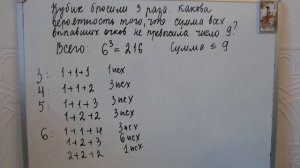 Кубик бросили 3 раза. Какова
вероятность того, что сумма всех
выпавших очков не превысила число 9?
Всего: 6³ = 216 Сумма ≤ 9
3: 1+1+1 1 исх
4: 1+1+2 3 исх
5: 1+1+3 3 исх
1+2+2 3 исх
6: 1+1+4 3 исх
1+2+3 6 исх
2+2+2 1 исх